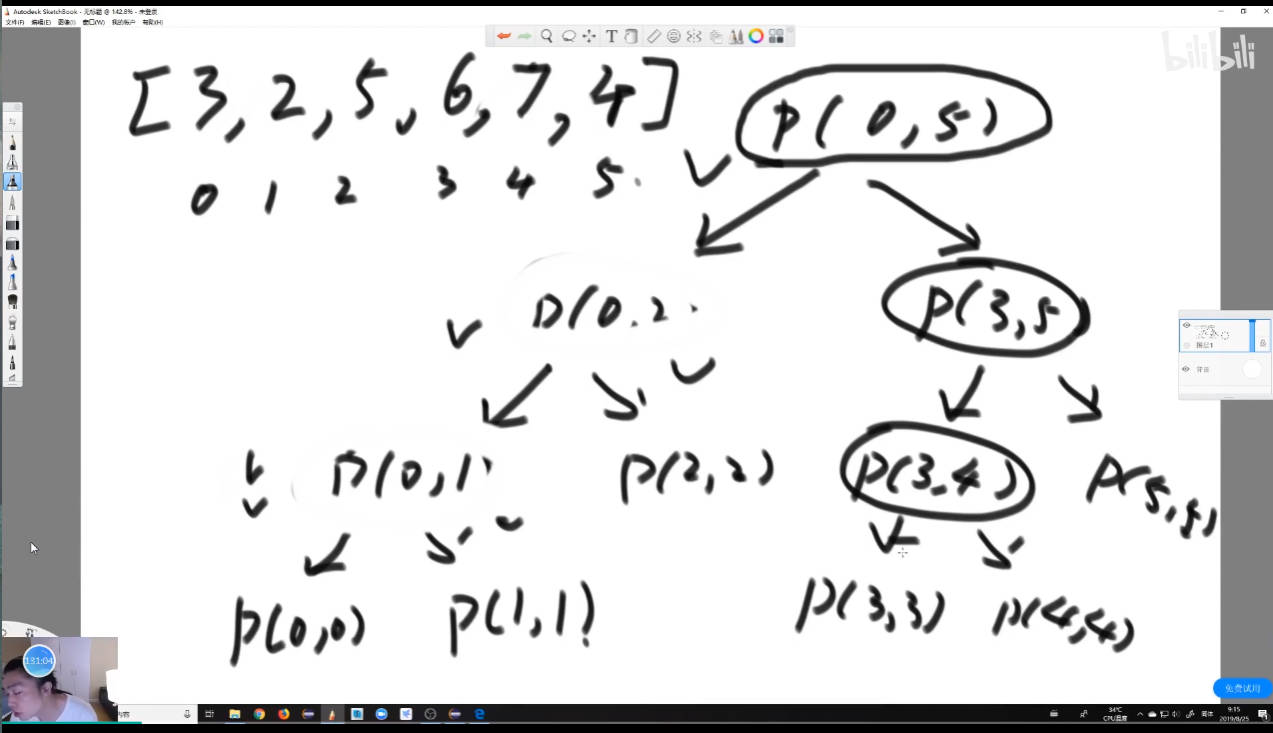 Autodesk SketchBook - 无标题 @ 142.8% - 未登录
文件(F) 编辑(E) 图像(I) 窗口(W) 我的帐户 帮助(H)
bilibili
[3, 2, 5, 6, 7, 4]
0 1 2 3 4 5
p(0,5)
p(0.2
p(3,5
p(0,1)
p(2,2)
p(3,4)
p(5,5)
p(0,0)
p(1,1)
p(3,3)
p(4,4)
图层1
背景
131:04
免费试用
34℃
CPU温度
简体
9:15
2019/8/25